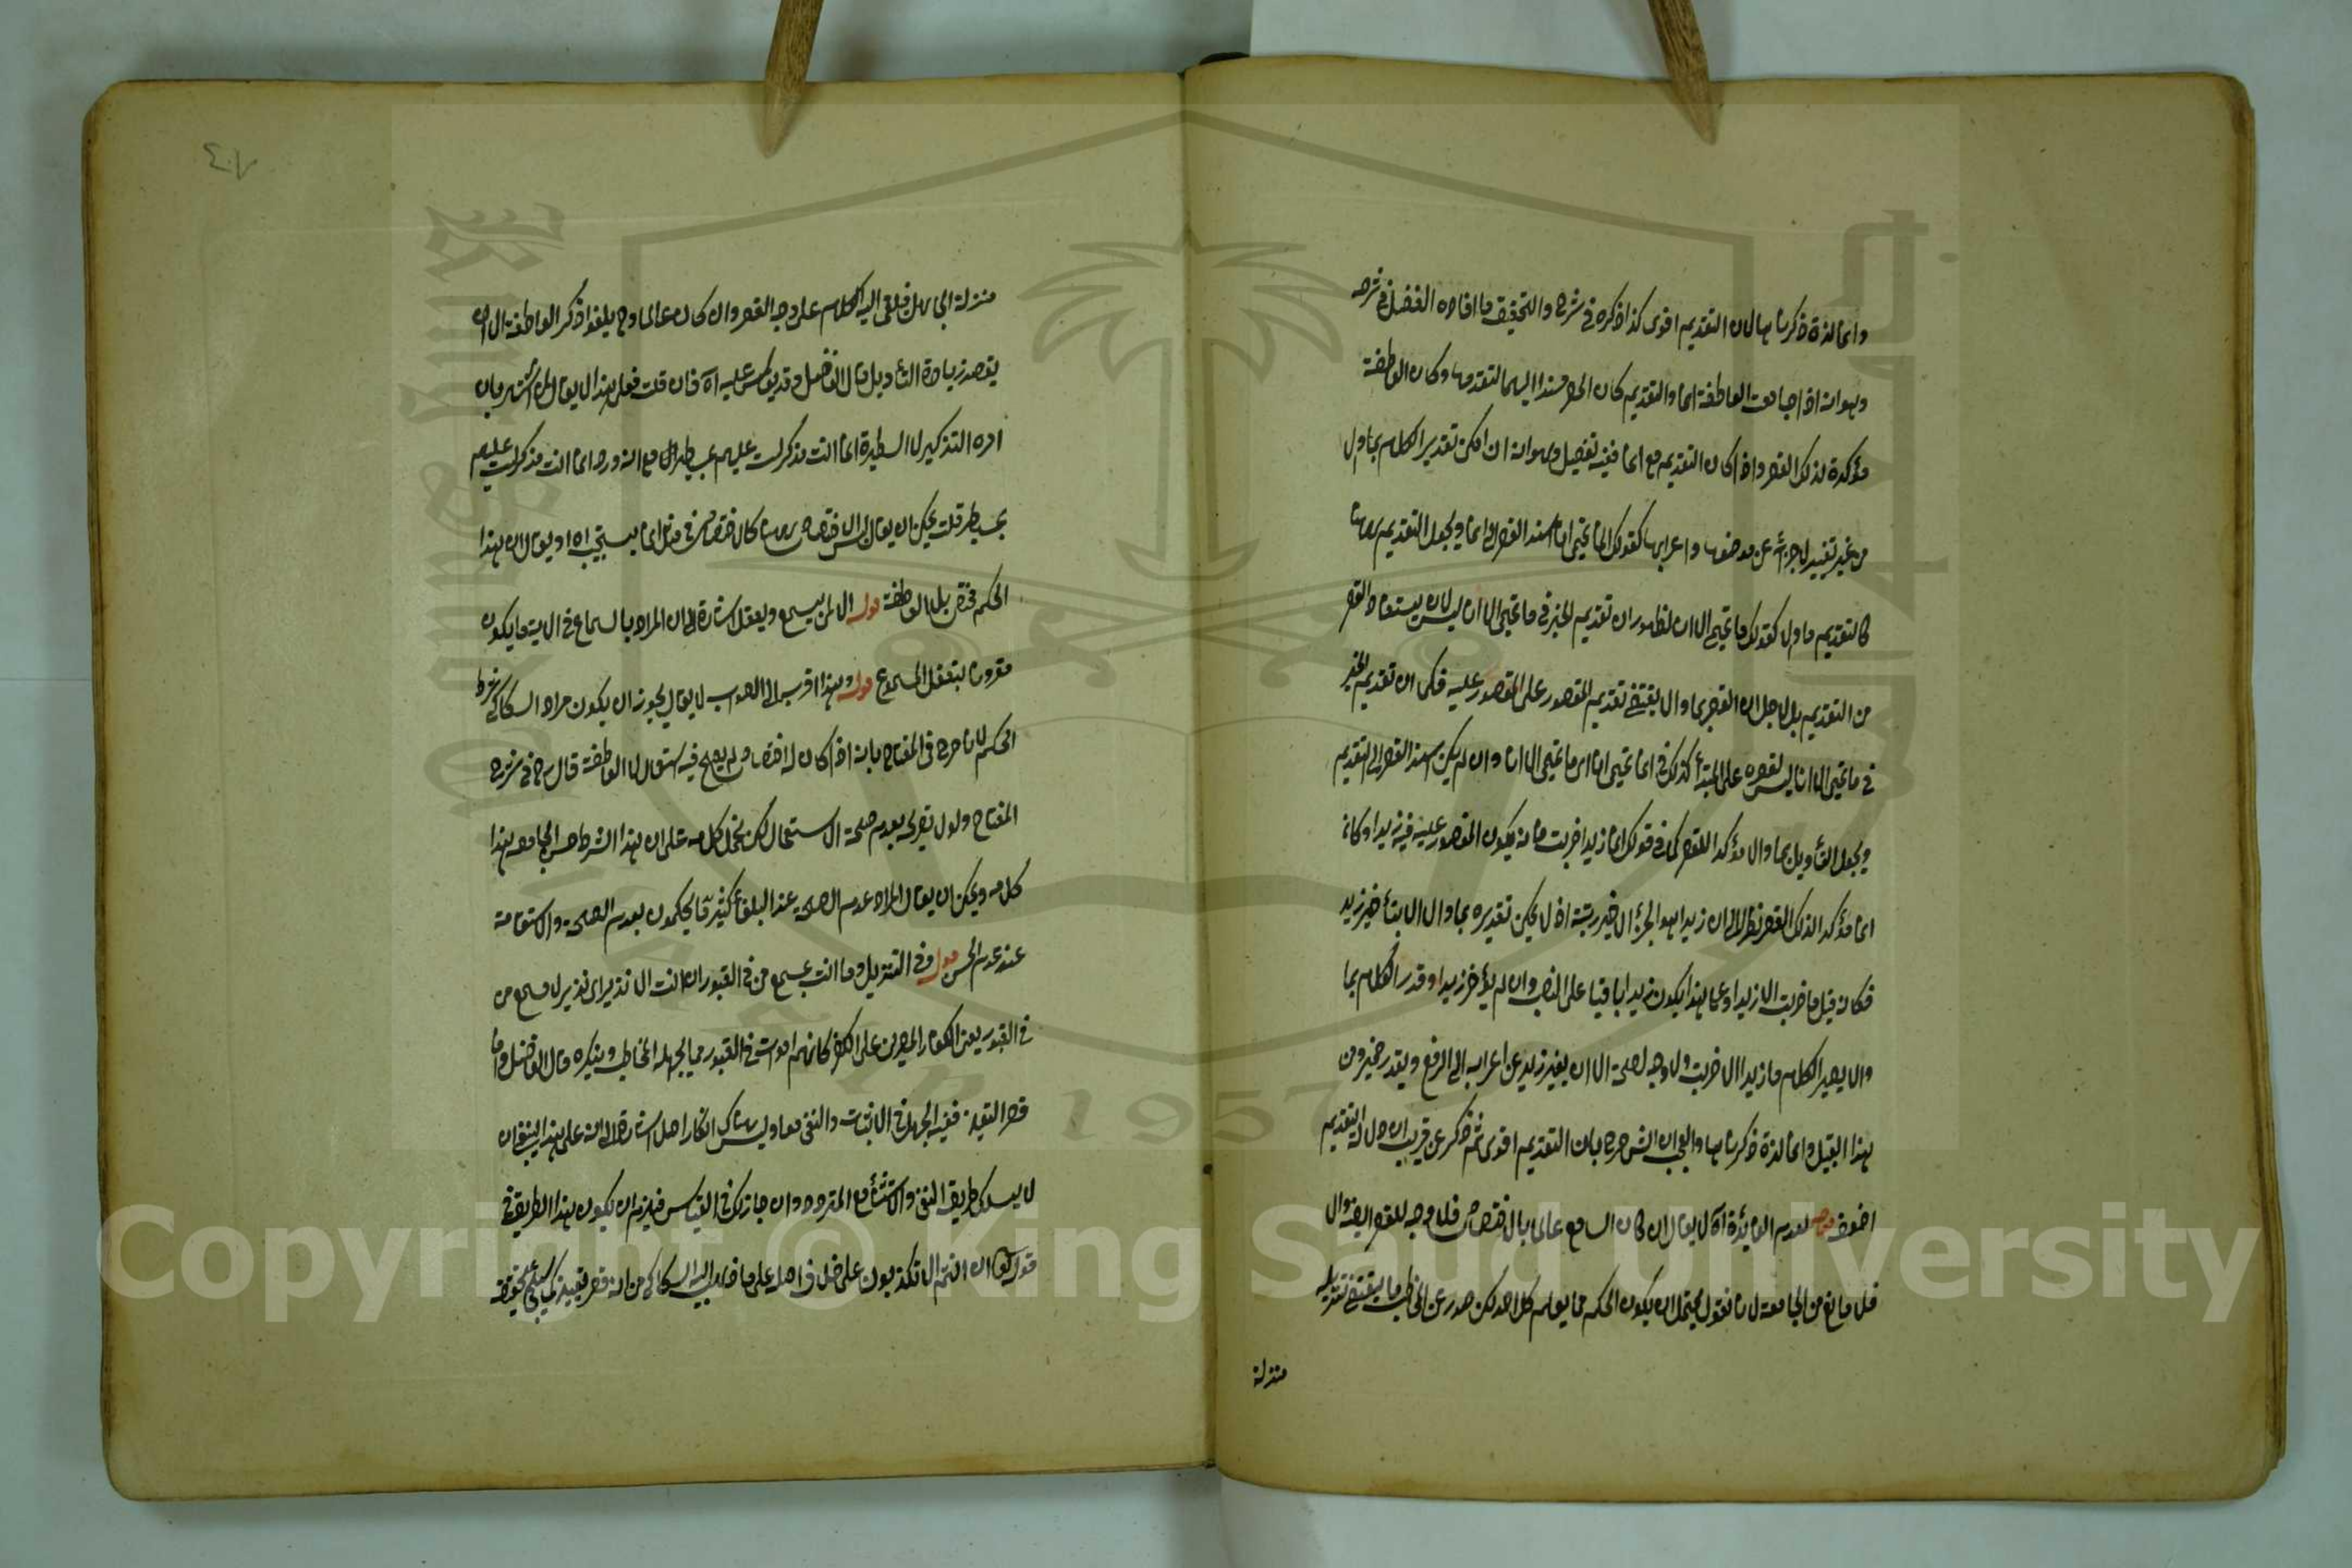 وانما لذة ذكرناها لان التقديم اقوى كذا ذكره في شرح والتحقيق ما افاده الفاضل في شرحه
وهو انه اذا جامعت العاطفة انما والتقديم كان الحصر مسندا اليهما لتقدمها وكان العاطفة
مؤكدة لذلك القصر واذا كان التقديم مع انما ففيه تفصيل وهو انه ان امكن تقدير الكلام بما والا
من غير تغيير لاجزائه عن موضعها واعرابها كقولك انما تميمي انا اسند القصر الى انما ويجعل التقديم ههنا
كالتقديم ما والا كقولك ما تميمي الا انا لظهور ان تقديم الخبر في ما تميمي الا انا ليس لان يستفاد القصر
من التقديم بل لاجل ان القصر بما والا يقتضي تقديم المقصور على المقصور عليه فكما ان تقديم الخبر
في ما تميمي الا انا ليس لقصره على المبتدأ كذلك في انما تميمي انا اي ما تميمي الا انا وان لم يكن اسند القصر الى التقديم
ويجعل التأويل بما والا مؤكدا للقصر كما في قولك انما زيدا ضربت فانه يكون المقصور عليه فيه زيدا وكان
انما مؤكدا لذلك القصر نظرا الى ان زيدا هو الجزء الاخير رتبة اذ لا يمكن تقديره بما والا الا بتأخير زيد
فكانه قيل ما ضربت الا زيدا وعلى هذا يكون زيدا باقيا على النصب وان لم يؤخر زيدا وقدر الكلام بما
والا يصير الكلام ما زيدا الا ضربت ولا وجه لصحة الا ان يغير زيد عن اعرابه الى الرفع ويقدر ضمير ومن
هذا القبيل وانما لذة ذكرناها والعجب ان الش صرح بان التقديم اقوى ثم ذكر عن قريب ان دلالة التقديم
اضعف قوله لعدم الفائدة آه لا يقال ان كان السامع عالما بالاختصاص فلا وجه للقصر ايضا والا
فلا مانع من الجامعة لانا نقول يحتمل ان يكون الحكم مما يعلمه كل احد لكن صدر عن المخاطب ما يقتضي تنزيله
منزلة
منزلة الجاهل فيلقى اليه الكلام على وجه القصر وان كان عالما وح يلغو ذكر العاطفة الا ان
يقصد زيادة التأويل قال الفاضل وقد يعكس عليه آه فان قلت فعلى هذا لا يقال ان اشتهر بان
امره التذكير لا السيطرة انما انت مذكر لست عليهم بمسيطر مع انه ورد انما انت مذكر لست عليهم
بمسيطر قلت يمكن ان يقال ليس الاختصاص ههنا كالاختصاص في مثل انما يستجيب اه او يقال ان هذا
الحكم مختص بلا العاطفة قوله الا لمن يسمع ويعقل اشارة الى ان المراد بالسماع في الاية ما يكون
مقرونا بتعقل المسموع قوله وهذا اقرب الى الصواب لا يقال يجوز ان يكون مراد السكاكي شرط
الحكم لانا صرح في المفتاح بانه اذا كان له اختصاص لم يصح فيه استعمال لا العاطفة قال في شرح
المفتاح ولو لا تصريحه بعدم صحة الاستعمال لامكن يحمل كلامه على ان هذا الشرط حسن الجامعة هذا
كلامه ويمكن ان يقال المراد عدم الصحة عند البلغاء كثيرا ما يحكمون بعدم الصحة والاستقامة
عند عدم الحسن قوله وفي التنزيل وما انت بمسمع من في القبور ان انت الا نذير اي نذير لا مسمع من
في القبور يعني الكفار المصرين على الكفر كانهم اموات في القبور مما يجهله المخاطب وينكره قال الفاضل واما
قصر التعيين ففيه الجهل في الاثبات والنفي معا وليس هناك انكار اصلا اشارة الى انه على هذا ينبغي ان
لا يسلك طريق النفي والاستثناء مع المتردد وان جاز ذلك في القياس فيلزم ان يكون هذا الطريق في
قوله تعالى ان انتم الا تكذبون على خلاف اصله على ما ذهب اليه السكاكي من انه قصر تعيين كما سيأتي تحقيقه